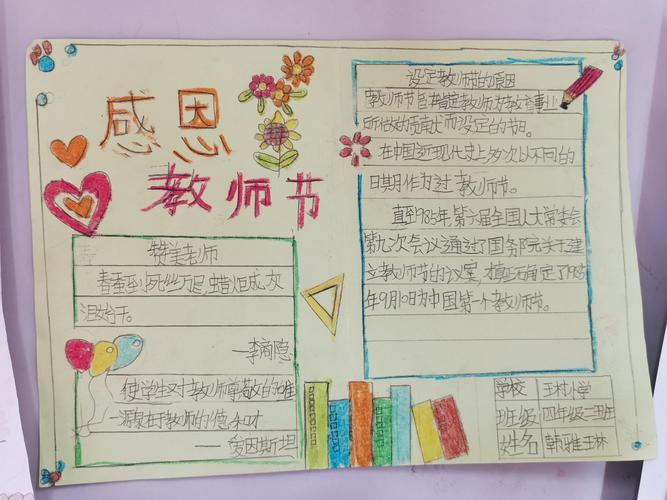 感恩
教师节
赞美老师
春蚕到死丝方尽,蜡炬成灰
泪始干。
—李商隐
使学生对教师尊敬的唯一
源泉在于教师的德和才
——爱因斯坦
设定教师节的原因
教师节旨在肯定教师为教育事业
所做的贡献而设定的节日。
在中国近现代史上多次以不同的
日期作为过教师节。
直到1985年,第六届全国人大常委会
第九次会议通过了国务院关于建
立教师节的议案,才真正确定了1985
年9月10日为中国第一个教师节。
学校 王村小学
班级 四年级二班
姓名 韩雅林